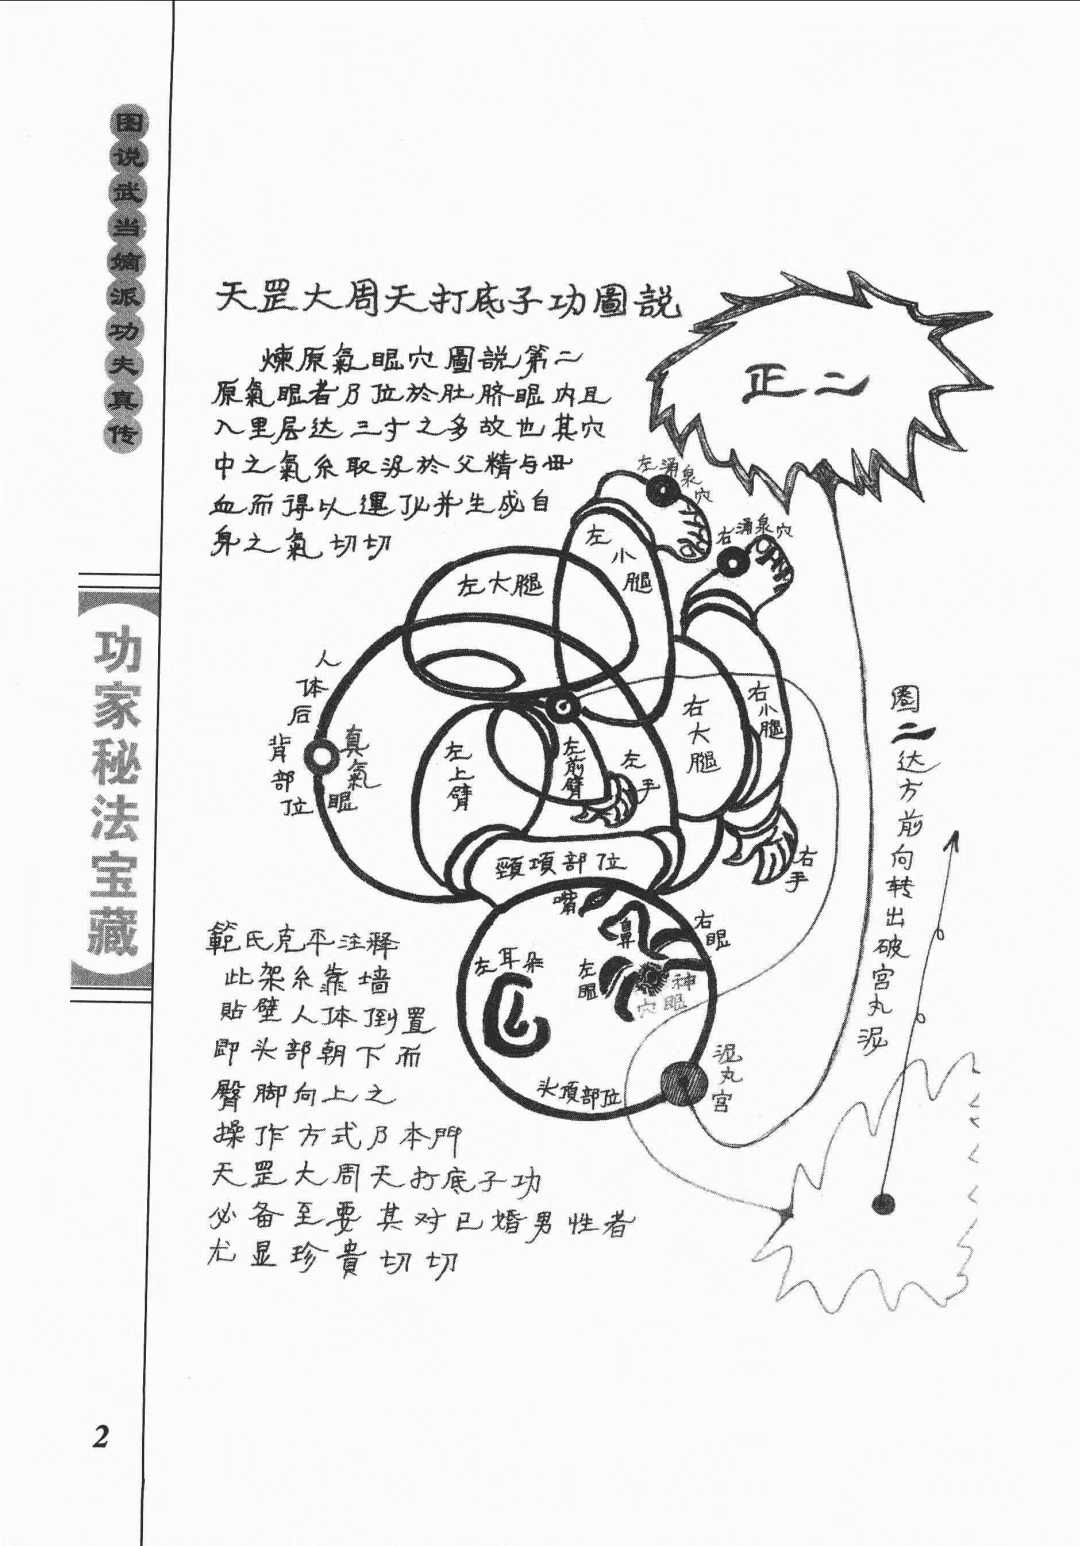 图说武当嫡派功夫真传
功家秘法宝藏
2
天罡大周天打底子功圖説
煉原氣眼穴圖説第二
原氣眼者乃位於肚脐眼内且
入里层达三寸之多故也其穴
中之氣系取汲於父精与母
血而得以運化并生成自
身之氣切切
正二
左涌泉穴
右涌泉穴
左小腿
左大腿
人体后背部位
真氣眼
左上臂
左前臂
左手
右大腿
右小腿
右手
頸項部位
嘴
鼻
右眼
左眼
神眼穴
左耳朵
头頂部位
泥丸宮
圈二达方前向转出破宮丸泥
範氏克平注釋
此架系靠墙
貼壁人体倒置
即头部朝下而
臀脚向上之
操作方式乃本門
天罡大周天打底子功
必备至要其对已婚男性者
尤显珍貴切切